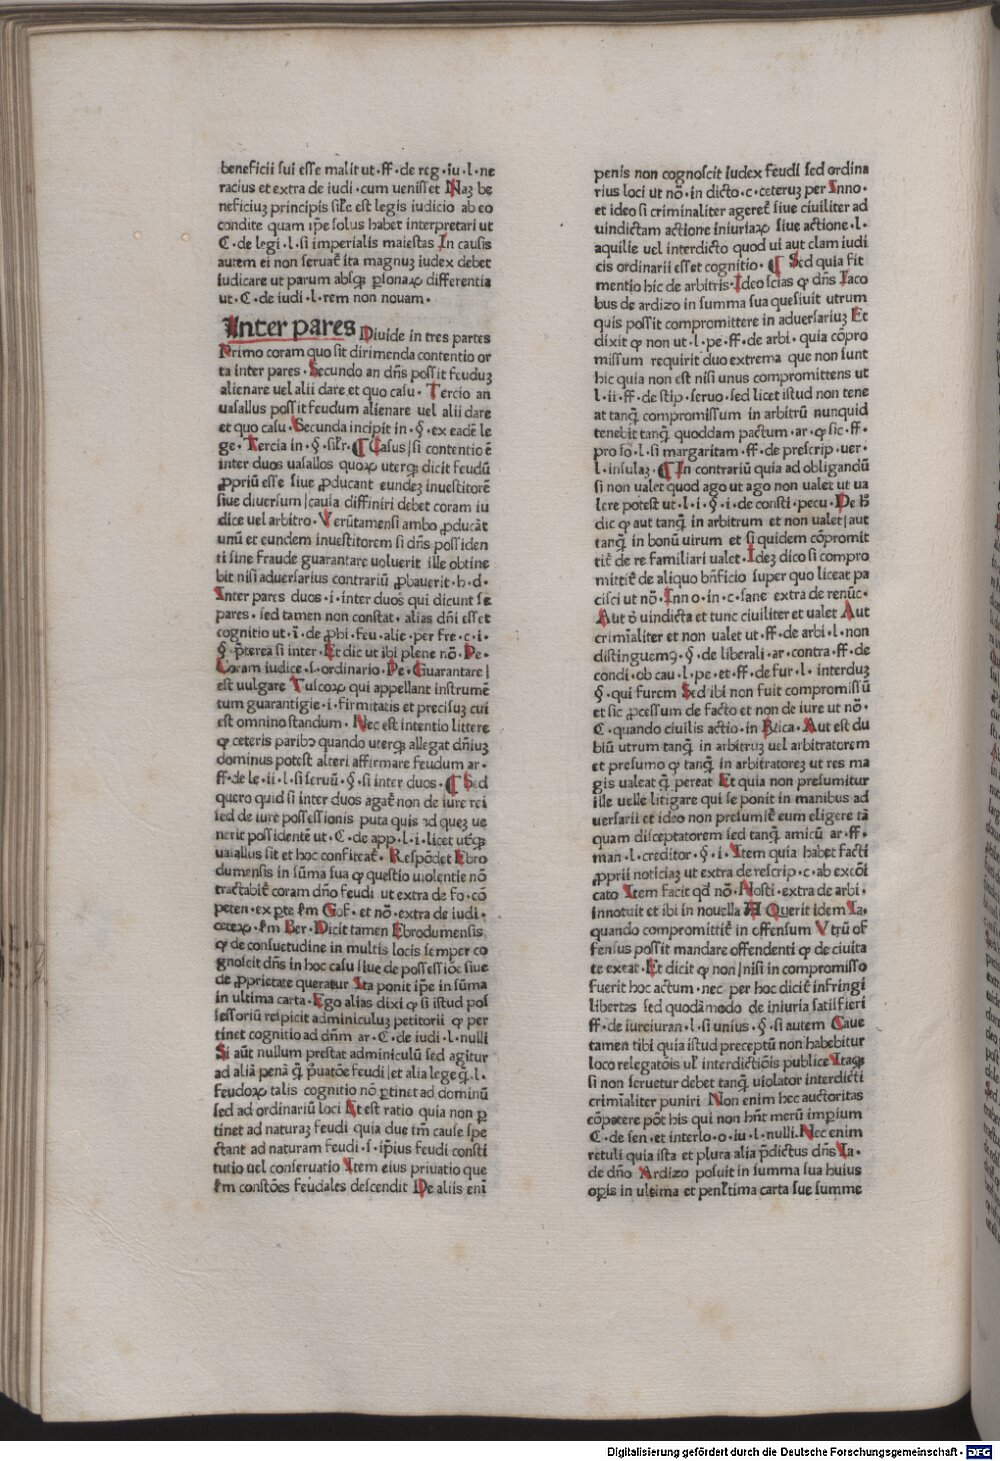 beneficii sui esse malit ut·ff·de reg·iu·l·ne
racius et extra de iudi·cum uenisset Naʒ be
neficiuʒ principis sil̄e est legis iudicio ab eo
condite quam ip̄e solus habet interpretari ut
C·de legi·l·si imperialis maiestas In causis
autem ei non seruat̄ ita magnuʒ iudex debet
iudicare ut parum absqʒ ꝑsonaꝝ differentia
ut·C·de iudi·l·rem non nouam·
Inter pares Diuide in tres partes
Primo coram quo sit dirimenda contentio or
ta inter pares·Secundo an dn̄s possit feuduʒ
alienare uel alii dare et quo casu·Tercio an
uasallus possit feudum alienare uel alii dare
et quo casu·Secunda incipit in·§·ex eadē le
ge·Tercia in·§·sil̄r·¶ Casus|si contentio ē
inter duos uasallos quoꝝ uterqʒ dicit feudū
ꝓpriū esse siue ꝓducant eundeʒ inuestitorē
siue diuersum|causa diffiniri debet coram iu
dice uel arbitro·Verūtamen si ambo ꝓducāt
unū et eundem inuestitorem si dn̄s possiden
ti sine fraude guarantare uoluerit ille obtine
bit nisi aduersarius contrariū ꝓbauerit·h·d·
Inter pares duos·i·inter duos qui dicunt se
pares·sed tamen non constat·alias dn̄i esset
cognitio ut·ī·de ꝓhi·feu·alie·per fre·c·i·
§·p̄terea si inter·Et dic ut ibi plene nō·De·
Coram iudice·s·ordinario·De·Guarantare|
est uulgare Tuscoꝝ qui appellant instrumē
tum guarantigie·i·firmitatis et precisuʒ cui
est omnino standum·Nec est intentio littere
ꝙ ceteris paribꝰ quando uterqʒ allegat dn̄iuʒ
dominus potest alteri affirmare feudum ar·
ff·de le·ii·l·si seruū·§·si inter duos·¶ Sed
quero quid si inter duos agat̄ non de iure rei
sed de iure possessionis puta quis ad queʒ ue
nerit possidentē ut·C·de app·l·i·licet ut̄qʒ
uasallus sit et hoc confiteat̄·Respōdet Ebro
dumensis in sūma sua ꝙ questio uiolentie nō
tractabit̄ coram dn̄o feudi ut extra de fo·cō
peten·ex ꝑte s̄m Gof·et nō·extra de iudi·
ceteꝝ·s̄m Ber·Dicit tamen Ebrodumensis
ꝙ de consuetudine in multis locis semper co
gnoscit dn̄s in hoc casu siue de possessiōe siue
de ꝓprietate queratur Ita ponit ip̄e in sūma
in ultima carta·Ego alias dixi ꝙ si istud pos
sessoriū respicit adminiculuʒ petitorii ꝙ per
tinet cognitio ad dn̄m ar·C·de iudi·l·nulli
Si aūt nullum prestat adminiculū sed agitur
ad aliā penā q̄ p̄uatōe feudi|et alia lege q̄·l·
feudoꝝ talis cognitio nō ꝑtinet ad dominū
sed ad ordinariū loci Et est ratio quia non ꝑ
tinet ad naturaʒ feudi quia due tm̄ cause spe
ctant ad naturam feudi·s·ip̄ius feudi consti
tutio uel conseruatio Item eius priuatio que
s̄m constōes feudales descendit De aliis eni̅
penis non cognoscit iudex feudi sed ordina
rius loci ut nō·in dicto·c·ceteruʒ per Inno·
et ideo si criminaliter ageret̄ siue ciuiliter ad
uindictam actione iniuriaꝝ siue actione·l·
aquilie uel interdicto quod ui aut clam iudi
cis ordinarii esset cognitio·¶ Sed quia fit
mentio hic de arbitris·Ideo scias ꝙ dn̄s Iaco
bus de ardizo in summa sua quesiuit utrum
quis possit compromittere in aduersariuʒ Et
dixit ꝙ non ut·l·pe·ff·de arbi·quia cōpro
missum requirit duo extrema que non sunt
hic quia non est nisi unus compromittens ut
l·ii·ff·de stip·seruo·sed licet istud non tene
at tanq̄ compromissum in arbitrū nunquid
tenebit tanq̄ quoddam pactum·ar·ꝙ sic·ff·
pro so·l·si margaritam·ff·de prescrip·uer·
l·insulaʒ·¶ In contrariū quia ad obligandū
si non ualet quod ago ut ago non ualet ut ua
lere potest ut·l·i·§·i·de consti·pecu·De h̄
dic ꝙ aut tanq̄ in arbitrum et non ualet|aut
tanq̄ in bonū uirum et si quidem cōpromit
tit̄ de re familiari ualet·Ideʒ dico si compro
mittit̄ de aliquo bn̄ficio super quo liceat pa
cisci ut nō·Inno·in·c·sane extra de renūc·
Aut ō uindicta et tunc ciuiliter et ualet Aut
crim̄aliter et non ualet ut·ff·de arbi·l·non
distinguemꝰ·§·de liberali·ar·contra·ff·de
condi·ob cau·l·pe·et·ff·de fur·l·interduʒ
§·qui furem Sed ibi non fuit compromissū
et sic ꝓcessum de facto et non de iure ut nō·
C·quando ciuilis actio·in Rūica·Aut est du
biū utrum tanq̄ in arbitruʒ uel arbitratorem
et presumo ꝙ tanq̄ in arbitratoreʒ ut res ma
gis ualeat q̄ pereat Et quia non presumitur
ille uelle litigare qui se ponit in manibus ad
uersarii et ideo non presumit̄ eum eligere tā
quam disceptatorem sed tanq̄ amicū ar·ff·
man·l·creditor·§·i·Item quia habet facti
ꝓprii noticiaʒ ut extra de rescrip·c·ab excōi
cato Item facit qd̄ nō·Hosti·extra de arbi·
innotuit et ibi in nouella ¶ Querit idem Ia·
quando committit̄ in offensum Vtrū of
fensus possit mandare offendenti ꝙ de ciuita
te exeat·Et dicit ꝙ non|nisi in compromisso
fuerit hoc actum·nec per hoc dicit̄ infringi
libertas sed quodāmodo de iniuria satisfieri
ff·de iureiuran·l·si unius·§·si autem Caue
tamen tibi quia istud preceptū non habebitur
loco relegatōis ul̄ interdictiōis publice Itaqʒ
si non seruetur debet tanq̄ uiolator interdicti
crim̄aliter puniri Non enim hec auctoritas
cōpetere pōt his qui non hn̄t merū imperium
C·de sen·et interlo·o·iu·l·nulli·Nec enim
retuli quia ista et plura alia p̄dictus dn̄s Ia·
de dn̄o Ardizo posuit in summa sua huius
oꝑis in ultima et penl̄tima carta sue summe
Digitalisierung gefördert durch die Deutsche Forschungsgemeinschaft - DFG